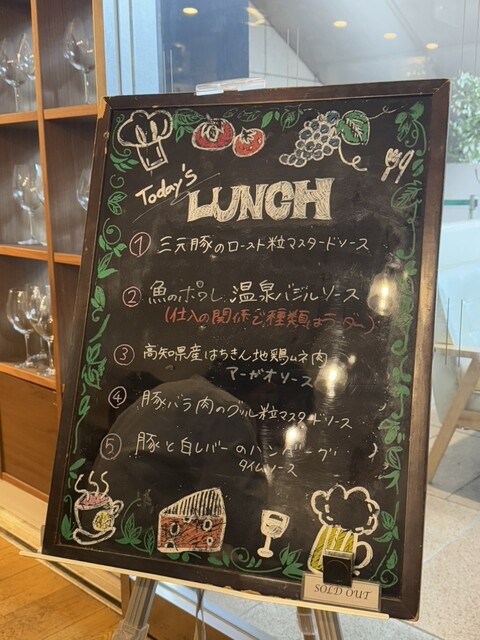 Today's
LUNCH
① 三元豚のロースト粒マスタードソース
② 魚のポワレ 温泉バジルソース
(仕入の関係で種類はランダム)
③ 高知県産はちきん地鶏ムネ肉
アーガオソース
④ 豚バラ肉のグリル粒マスタードソース
⑤ 豚と白レバーのハンバーグ
タイムソース
SOLD OUT